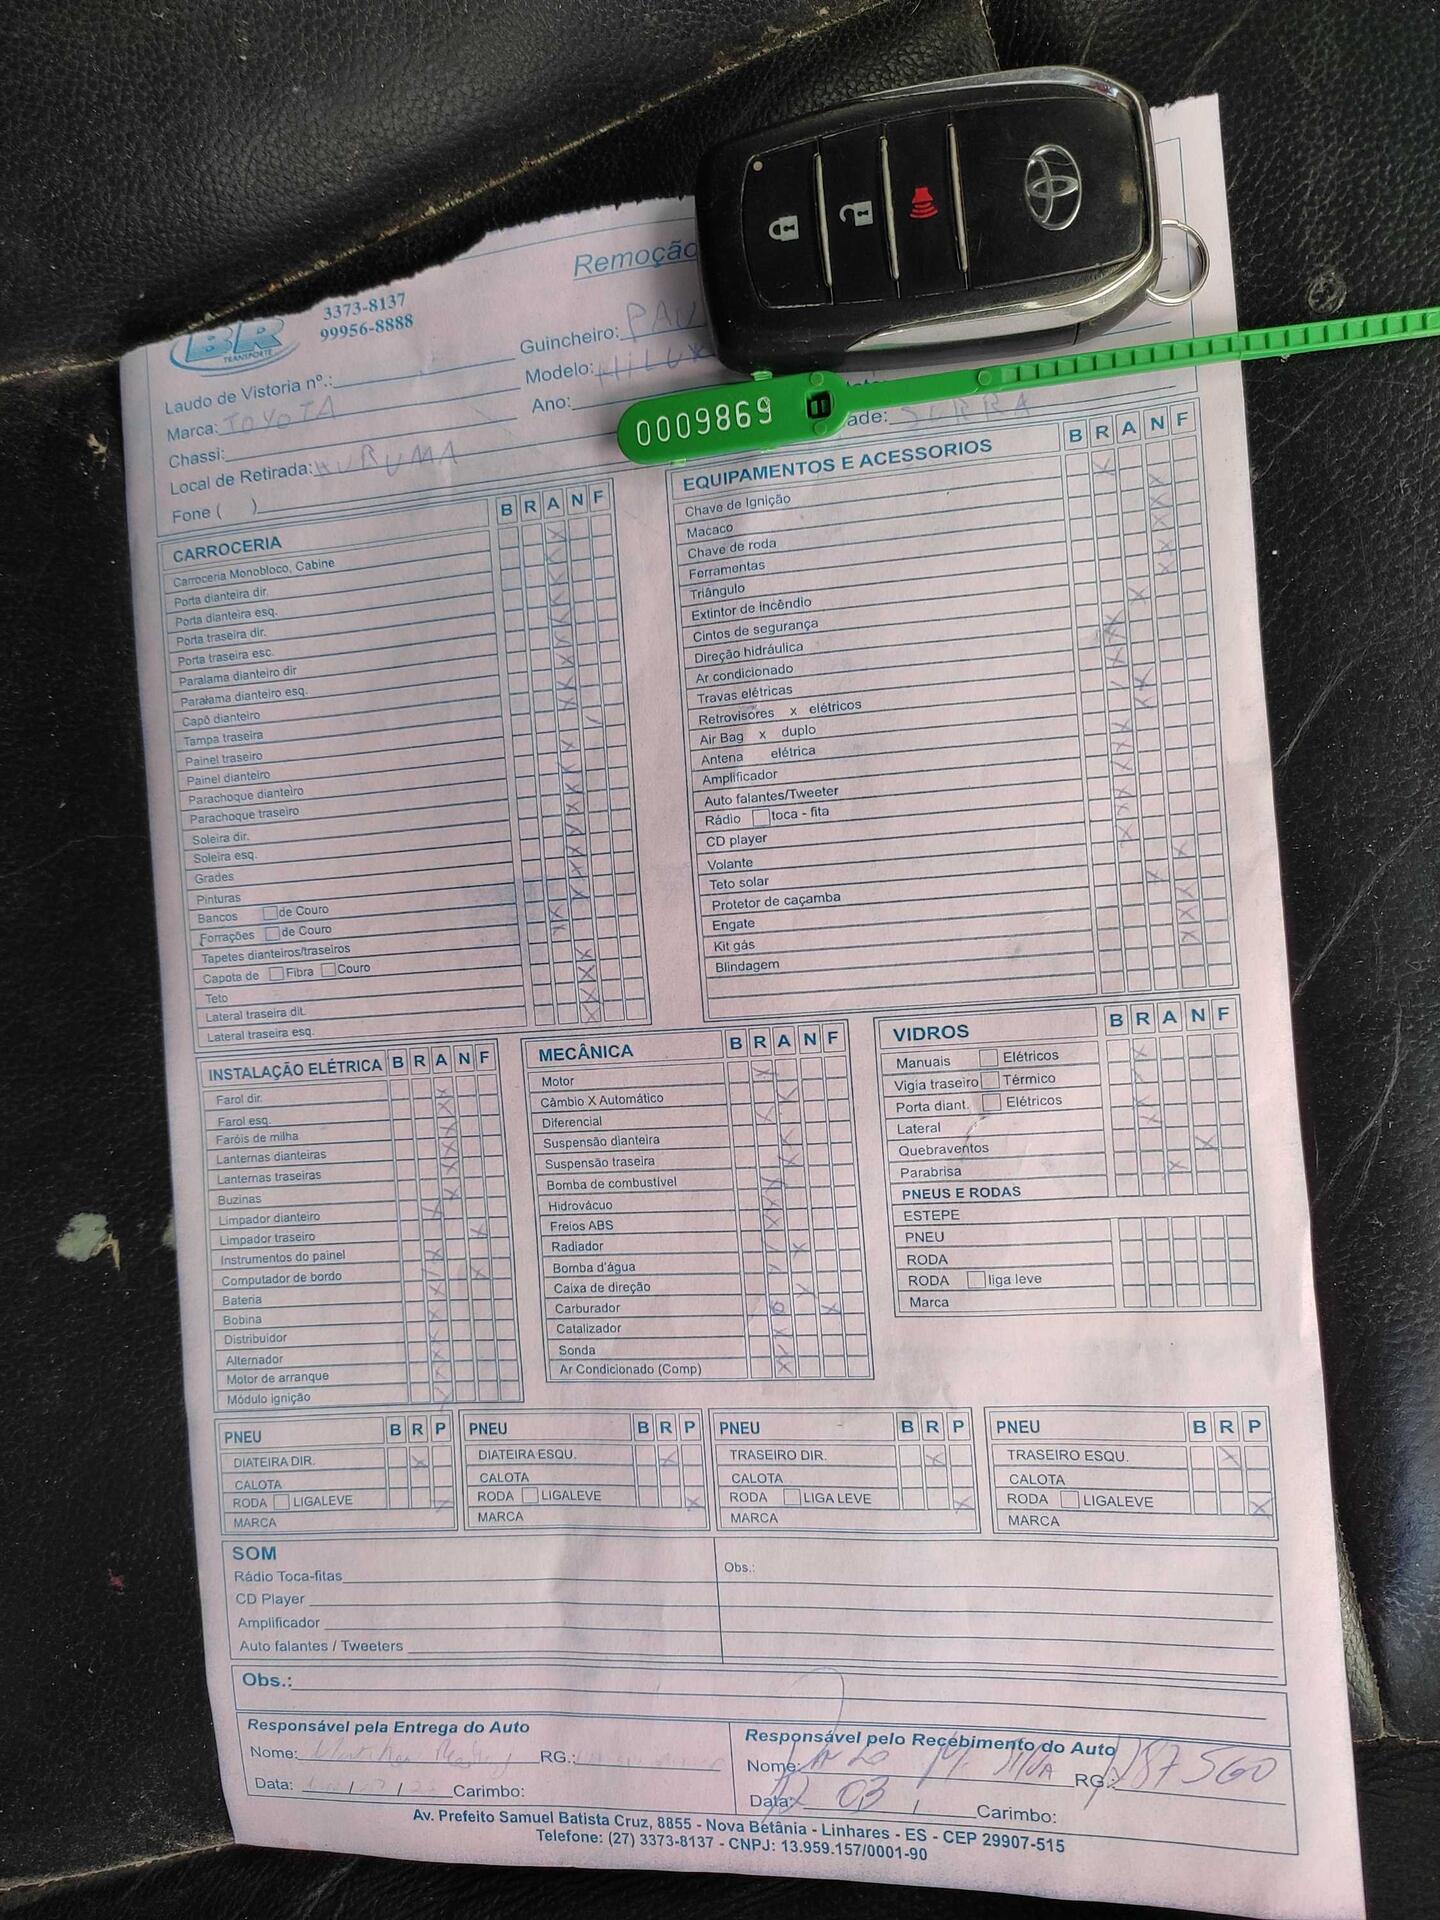 Remoção
BR
TRANSPORTE
3373-8137
99956-8888
Laudo de Vistoria nº.: Guincheiro: PAU
Marca: TOYOTA Modelo: HILUX
Chassi: Ano:
0009869
Local de Retirada: ade: SERRA
Fone ( )
CARROCERIA B R A N F
Carroceria Monobloco, Cabine
Porta dianteira dir.
Porta dianteira esq.
Porta traseira dir.
Porta traseira esc.
Paralama dianteiro dir
Paralama dianteiro esq.
Capô dianteiro
Tampa traseira
Painel traseiro
Painel dianteiro
Parachoque dianteiro
Parachoque traseiro
Soleira dir.
Soleira esq.
Grades
Pinturas
Bancos de Couro
Forrações de Couro
Tapetes dianteiros/traseiros
Capota de Fibra Couro
Teto
Lateral traseira dit.
Lateral traseira esq.
EQUIPAMENTOS E ACESSORIOS B R A N F
Chave de Ignição
Macaco
Chave de roda
Ferramentas
Triângulo
Extintor de Incêndio
Cintos de segurança
Direção hidráulica
Ar condicionado
Travas elétricas
Retrovisores x elétricos
Air Bag x duplo
Antena elétrica
Amplificador
Auto falantes/Tweeter
Rádio toca - fita
CD player
Volante
Teto solar
Protetor de caçamba
Engate
Kit gás
Blindagem
INSTALAÇÃO ELÉTRICA B R A N F
Farol dir.
Farol esq.
Faróis de milha
Lanternas dianteiras
Lanternas traseiras
Buzinas
Limpador dianteiro
Limpador traseiro
Instrumentos do painel
Computador de bordo
Bateria
Bobina
Distribuidor
Alternador
Motor de arranque
Módulo ignição
MECÂNICA B R A N F
Motor
Câmbio X Automático
Diferencial
Suspensão dianteira
Suspensão traseira
Bomba de combustível
Hidrovácuo
Freios ABS
Radiador
Bomba d'água
Caixa de direção
Carburador
Catalizador
Sonda
Ar Condicionado (Comp)
VIDROS B R A N F
Manuais Elétricos
Vigia traseiro Térmico
Porta diant. Elétricos
Lateral
Quebraventos
Parabrisa
PNEUS E RODAS
ESTEPE
PNEU
RODA
RODA liga leve
Marca
PNEU B R P
DIATEIRA DIR.
CALOTA
RODA LIGALEVE
MARCA
PNEU B R P
DIATEIRA ESQU.
CALOTA
RODA LIGALEVE
MARCA
PNEU B R P
TRASEIRO DIR.
CALOTA
RODA LIGA LEVE
MARCA
PNEU B R P
TRASEIRO ESQU.
CALOTA
RODA LIGALEVE
MARCA
SOM
Rádio Toca-fitas
CD Player
Amplificador
Auto falantes / Tweeters
Obs.:
Obs.:
Responsável pela Entrega do Auto
Nome: RG.:
Data: / / Carimbo:
Responsável pelo Recebimento do Auto
Nome: RG.:
Data: 03 / Carimbo:
Av. Prefeito Samuel Batista Cruz, 8855 - Nova Betânia - Linhares - ES - CEP 29907-515
Telefone: (27) 3373-8137 - CNPJ: 13.959.157/0001-90